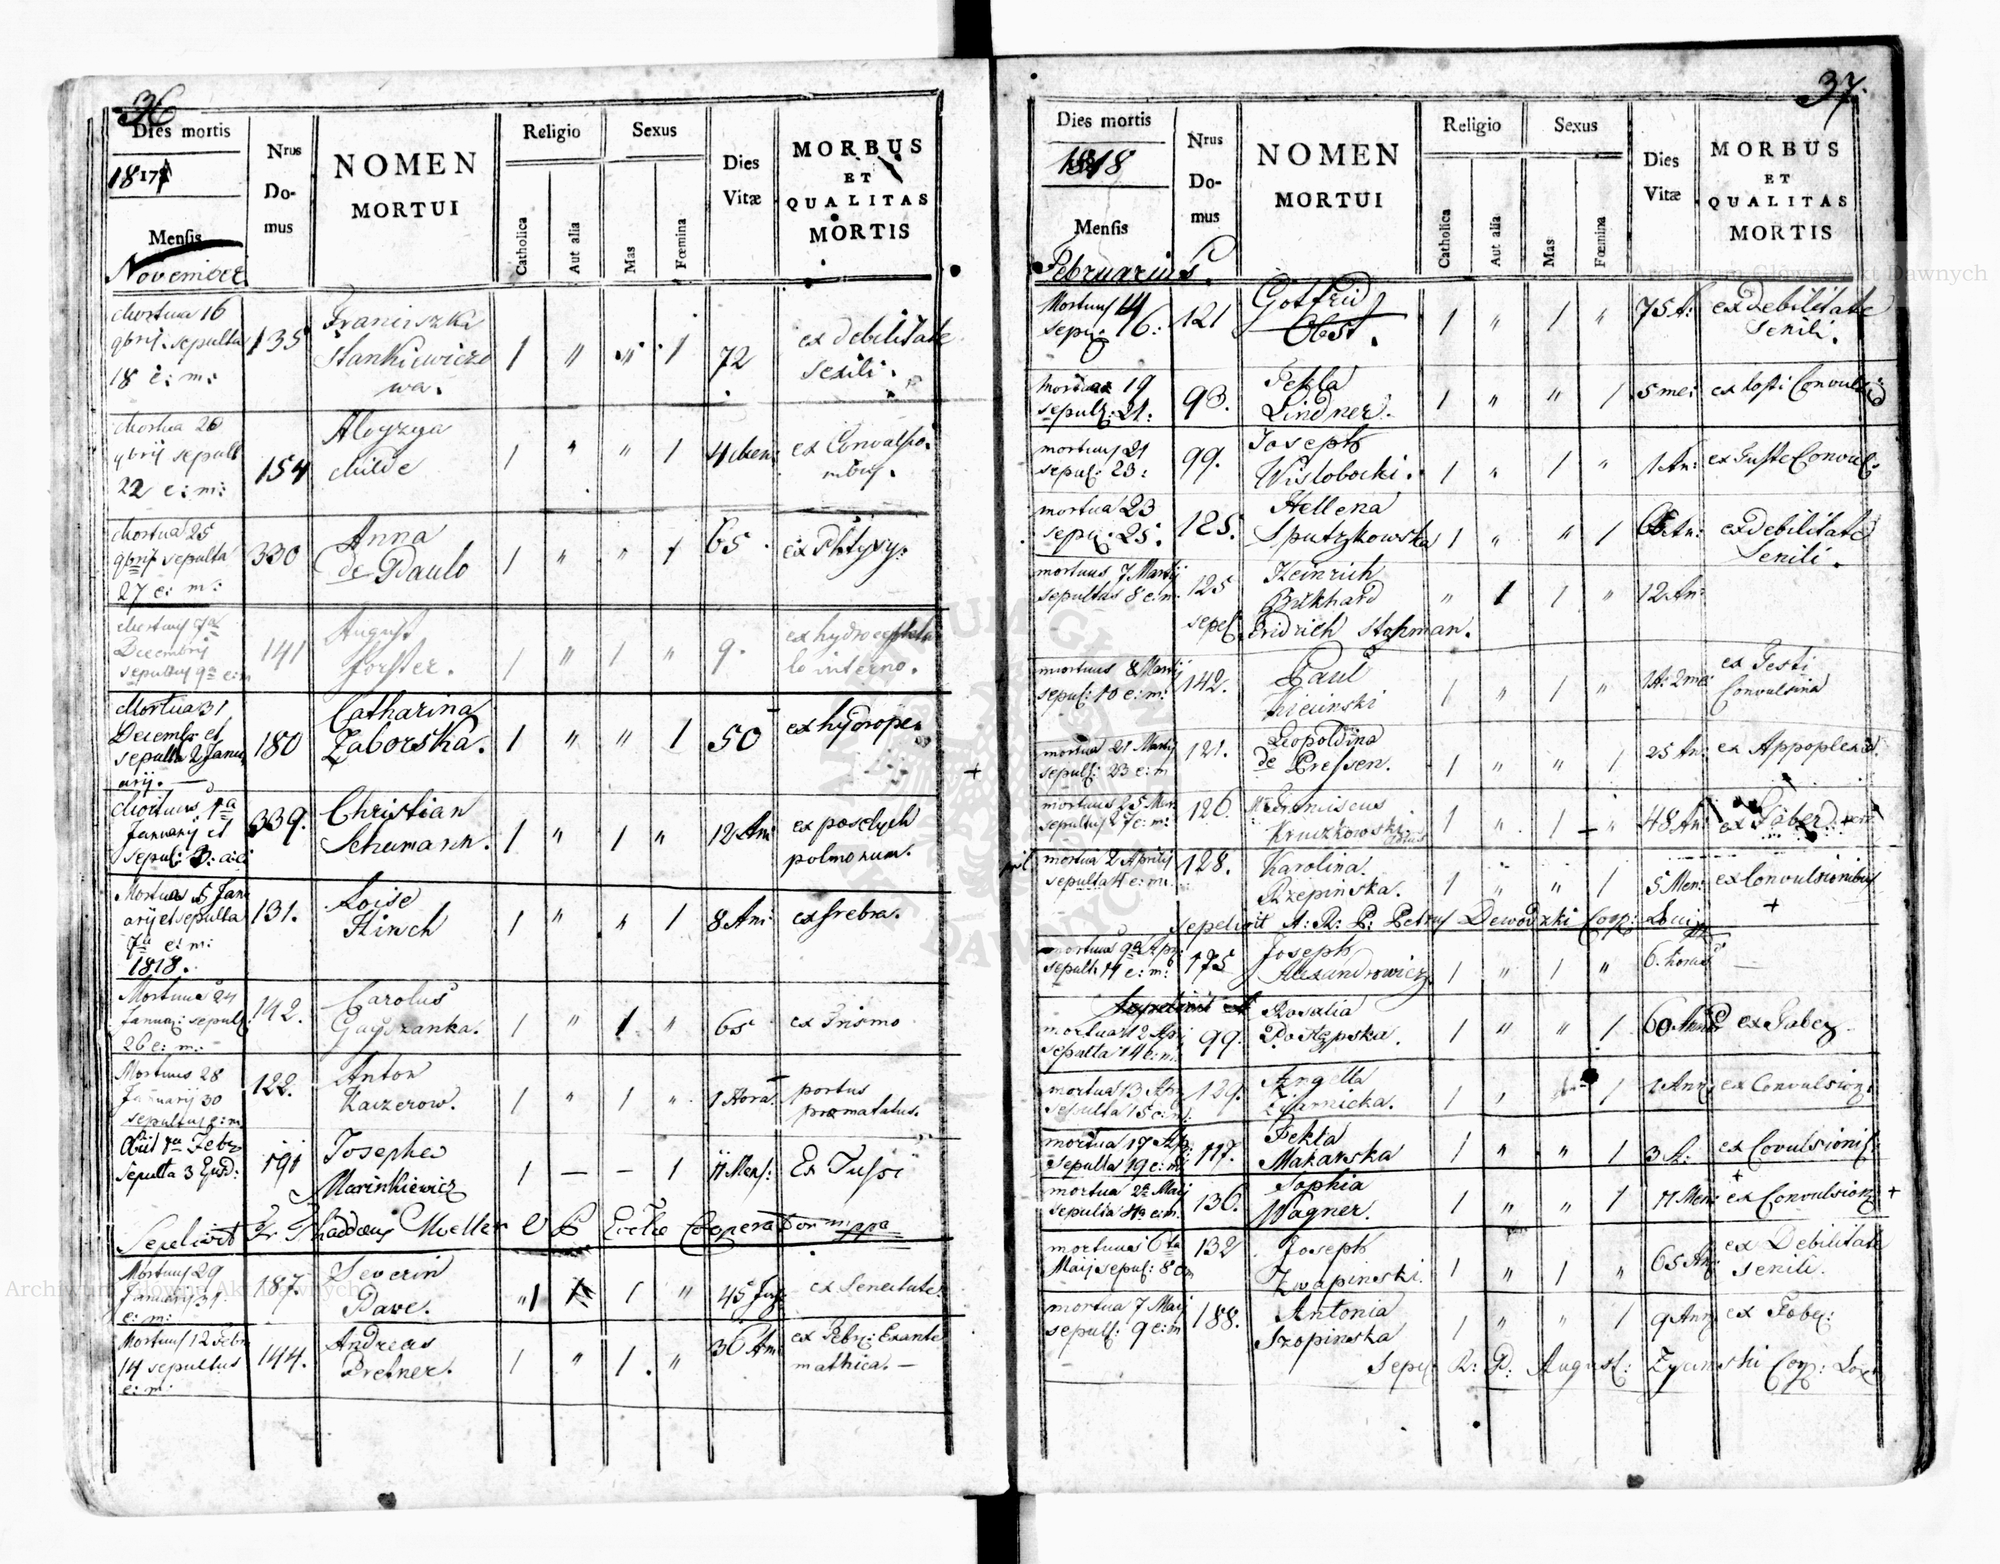 36
Dies mortis
1817
Mensis
November
Nrus
Do-
mus
NOMEN
MORTUI
Religio
Catholica
Aut alia
Sexus
Mas
Fœmina
Dies
Vitæ
MORBUS
ET
QUALITAS
MORTIS
Mortua 16 Franciszka ex debilitate
9bris: sepulta 135 Stankiewiczo 1 " " 1 72 senili.
18 e: m: wa.
Mortua 20 Aloyzya
9bris sepult 154 Milde 1 " " 1 4 Men: ex Convulsio-
22 e: m: nibus.
Mortua 25 Anna
9bris sepulta 330 de Paulo 1 " " 1 65 ex Phtysy:
27 e: m:
Mortuus 7a August ex hydrocepha
Decembris 141 Forster. 1 " 1 " 9. lo interno.
sepultus 9a e: m
Mortua 31 Catharina
Decembr et 180 Zaborska. 1 " " 1 50 ex hydrope
sepulta 2 Janu
arij.
Mortuus 1a Christian ex
Januarij et 339. Schumann. 1 " 1 " 12 An: polmonum.
sepul: 3:
Mortua 5 Jan Loise
arij et sepulta 131. Hirsch 1 " " 1 8 An: ex febra.
7a e: m:
1818.
Mortuus 24 Carolus
Januar: sepult: 142. Gaydzanka. 1 " 1 " 65 ex
26 e: m:
Mortuus 28 Anton
Januarij 30 122. Kaizerow. 1 " 1 " 1 Hora portus
sepultus e: m praematatus.
Obiit 1a Febr Josepha
sepulta 3 Ejusd: 191 Marinkiewicz 1 — — 1 11 Mens: Ex Tussi
Sepelivit Fr Thaddæus Moeller Eccliæ Cooperator mppa
Mortuus 29 Severin
Januarij 31 187. Pave. 1 1 " 45 ex Senectute
e: m:
Mortuus 12 Febr Andreas 36 An: ex Febr: Exante
14 sepultus 144. Pretner. 1 " 1 " mathica.
e: m:
37.
Dies mortis
1818
Mensis
Februarius
Nrus
Do-
mus
NOMEN
MORTUI
Religio
Catholica
Aut alia
Sexus
Mas
Fœmina
Dies
Vitæ
MORBUS
ET
QUALITAS
MORTIS
Mortuus 14 121 Gotfrid 75 A: ex debilitate
sepu: 16: Obst. 1 " 1 " senili.
mortua 19 93. Tekla 5 me: ex tossi Convulsio
sepult: 21: Lindner. 1 " " 1
mortuus 21 99. Joseph 1 An: ex Tuste Convul:
sepul: 23: Wislobocki. 1 " 1 "
mortua 23 125. Hellena An: ex debilitate
sepu: 25. Sputzkowska 1 " " 1 senili.
mortuus 7 Martij 125 Heinrich 12 An:
sepultus 8 e: m. Burkhard " 1 1 "
sepel: Fridrich Stahman.
mortuus 8 Martij 142. Paul 1 A: 2 me: ex Testi
sepul: 10 e: m: Kicinski 1 " 1 " Convulsina
mortua 21 Martij 121. Leopoldina 25 An: ex Appoplexia.
sepul: 23 e: m de Pressen. 1 " " 1
mortuus 25 Mar 126. Franciscus 48 An: ex Taber
sepultus 27 e: m: Kruczkowski 1 " 1 "
mortua 2 Aprilis 128. Karolina 5 Men: ex Convulsionibus
sepulta 4 e: m: Rzepinska. 1 " " 1
Sepelivit A: R: P: Petrus Dewodzki Coop: Loci
mortuus 9a Apr: 175 Joseph 6. horas
sepult 11 e: m: Alexandrowicz. 1 " 1 "
mortua 12 Apr 99. Rosalia 60 Ann ex Tabe
sepulta 14 e: m. Potempska. 1 " " 1
mortua 13 Apr 129. Angella 1 Ann: ex Convulsion:
sepulta 15 e: m Ziarnicka. 1 " 1
mortua 17 Apr 117. Tekla 3 A: ex Covulsionis:
sepulta 19 e: m Makarska 1 " " 1
mortua 2a Maij 136. Sophia 11 Men: ex Convulsion:
sepulta 4a e: m. Wagner. 1 " " 1
mortuus 6ta 132 Joseph 65 An: ex Debilitate
Maij sepul: 8 e m Zwapinski. 1 " 1 " senili.
mortua 7 Maij 188. Antonia 9 An: ex Tobe:
sepul: 9 e: m Szopinska 1 " " 1
Sepel: R: P: August: Zyanski Coop: Loci
Archiwum Główne Akt Dawnych
Archiwum Główne Akt Dawnych
ARCHIWUM GŁÓWNE AKT DAWNYCH